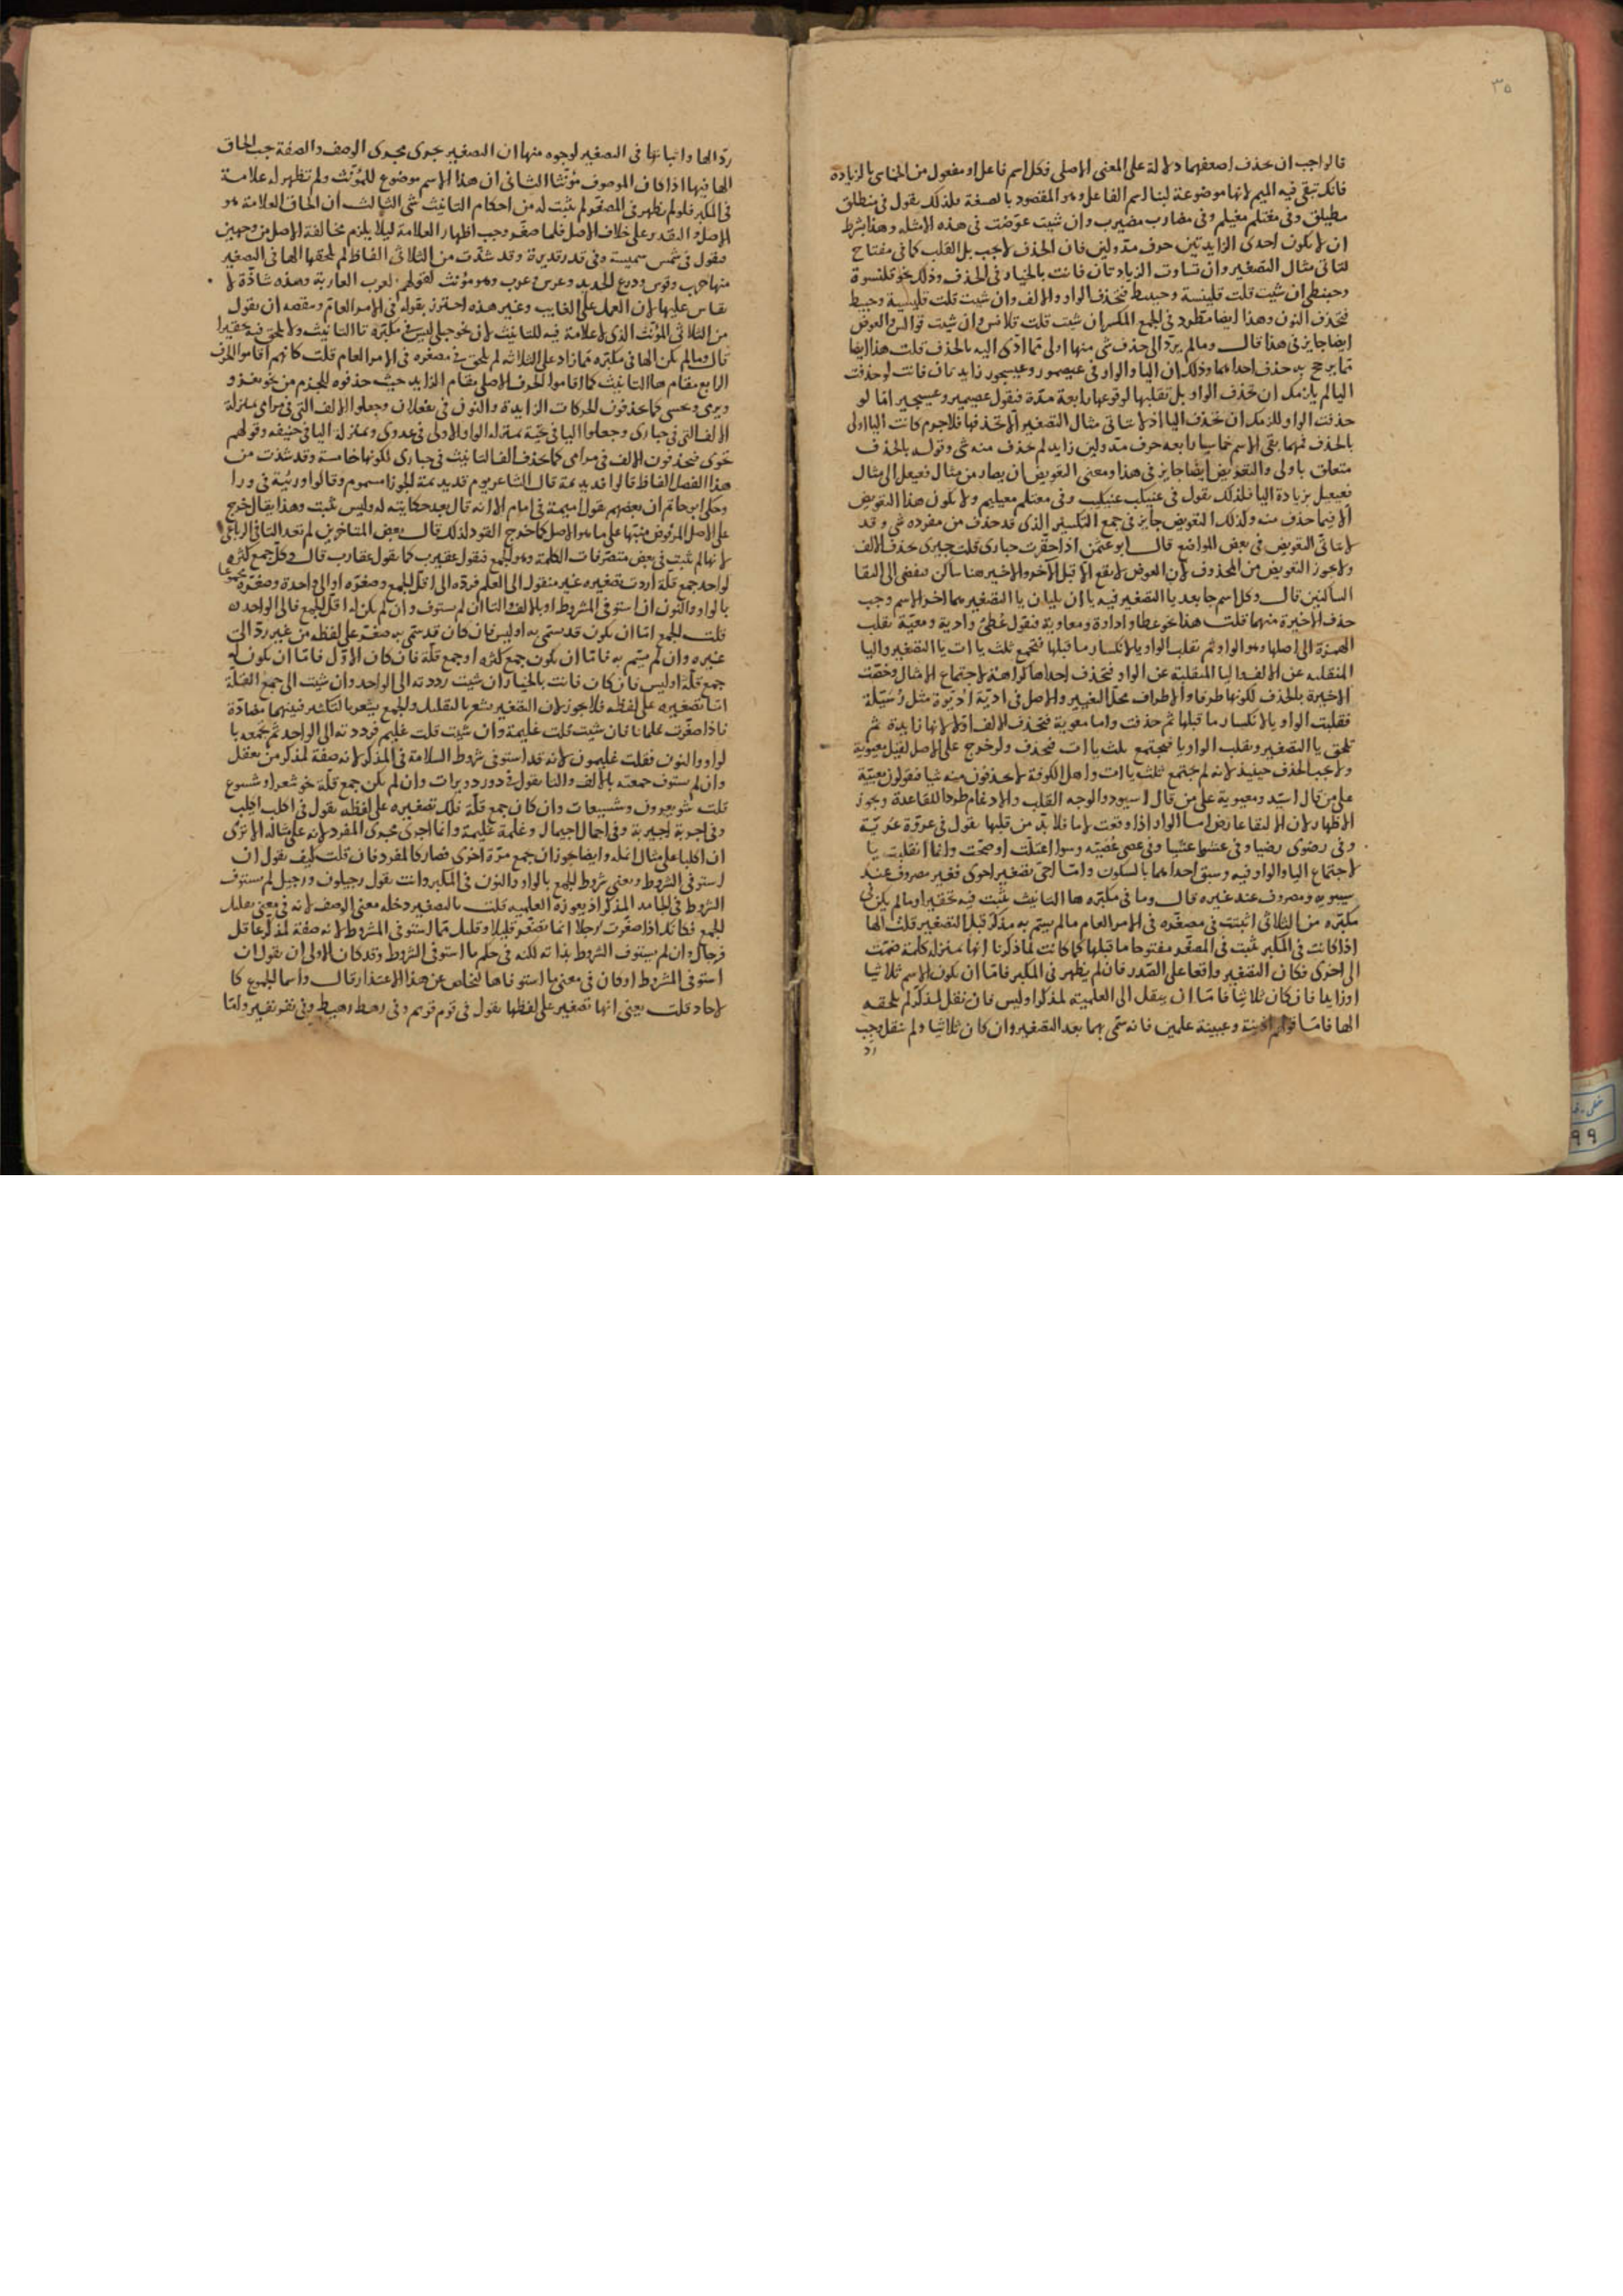 ٣٥
فالواجب ان تحذف اضعفهما دلالة على المعنى الاصلى فكل اسم فاعل او مفعول من الخماسى بالزيادة
فانك تبقى فيه الميم لانها موضوعة لبنا اسم الفاعل وهو المقصود بالصغة فلذلك يقول فى منطلق
مطيلق وفى مغتلم مغيلم وفى مضارب مضيرب وان شيت عوّضت فى هذه الامثله وهذا بشرط
ان لا يكون احدى الزايدتين حرف مدّ ولين فان الحذف لا يجب بل القلب كما فى مفتاح
لتاتى مثال التصغير وان تساوت الزيادتان فانت بالخيار فى الحذف وذلك نحو قلنسوة
وحبنطى ان شيت قلت قلينسة وحبيط فتحذف الواو والالف وان شيت قلت قليسية وحبيط
فتحذف النون وهذا ايضا مطرد فى الجمع المكسر ان شيت قلت قلانس وان شيت قوالس والعوض
ايضا جايز فى هذا قال ومالم يردّ الى حذف شى منها اولى مما ادّى اليه بالحذف قلت هذا ايضا
مما يرجح به حذف احداهما وذلك ان اليا والواو فى عيضموز وعيسجور زايدتان فانت لو حذفت
اليا لم يلزمك ان تحذف الواو بل تقلبها لوقوعها رابعة مدّة فيقول عضيميز وعسيجير امّا لو
حذفت الواو للزمك ان تحذف اليا اذ لا يتاتى مثال التصغير الا بحذفها فلا جرم كانت اليا اولى
بالحذف فمهما بقى الاسم خماسيا رابعه حرف مدّ ولين زايد لم يحذف منه شى وقوله بالحذف
متعلق باولى والتعويض ايضا جايز فى هذا ومعنى التعويض ان يصار من مثال فعيعل الى مثال
فعيعيل بزيادة اليا فلذلك يقول فى عنيكب عنيكيب وفى مغتلم مغيليم ولا يكون هذا التعويض
الا فيما حذف منه وكذلك التعويض جايز فى جمع التكسير الذى قد حذف من مفرده شى وقد
لا يتاتى التعويض فى بعض المواضع قال ابو عثمن اذا حقرت حبارى قلت حبيرى بحذف الالف
ولا يجوز التعويض من المحذوف لان العوض لا يقع الا قبل الآخر والاخير هنا ساكن فيفضى الى التقا
الساكنين قال وكل اسم جا بعد يا التصغير فيه يا ان يليان يا التصغير هما اخر الاسم وجب
حذف الاخيرة منهما قلت هذا نحو عطا واداوة ومعاوية فيقول عطىّ وادية ومعيّة تقلب
الهمزة الى اصلها وهو الواو ثم تقلب الواو يا لانكسار ما قبلها فتجمع ثلث يا ات يا التصغير واليا
المنقلبه عن الالف واليا المنقلبة عن الواو فتحذف احداها كراهة لاجتماع الامثال وخصّت
الاخيرة بالحذف لكونها طرفا والاطراف محلّ التغيير والاصل فى اديّة اديّوة مثل رسيّلة
فقلبت الواو يا لانكسار ما قبلها ثم حذفت واما معوية فتحذف الالف اولا لانها زايدة ثم
تلحق يا التصغير وتقلب الواو يا فتجتمع ثلث يا ات فتحذف ولو خرج على الاصل لقيل معيوية
ولا يجب الحذف حينيذ لانه لم يجتمع ثلث يا ات واهل الكوفة لا يحذفون منه شيا فيقولون معيية
على من قال اسيّد ومعيوية على من قال اسيود والوجه القلب والادغام طردا للقاعدة ويجوز
الاظهار لان الالتقا عارض اما الواو اذا وقعت لاما فلا بدّ من قلبها يقول فى عروة عريّة
وفى رضوى رضيا وفى عشوا عشيّا وفى عصى عصيّه وسوا اعتلّت او صحّت وانما انقلبت يا
لاجتماع اليا والواو فيه وسبق احداهما بالسكون وامّا احىّ تصغير احوى فغير مصروف عند
سيبويه ومصروف عند غيره قال وما فى مكبّره ها التانيث يثبت فيه تحقيرا ومالم يكن فى
مكبّره من الثلاثى اثبتت فى مصغّره فى الامر العام مالم يسم به مذكر قبل التصغير قلت الها
اذا كانت فى المكبر ثبتت فى المصغّر مفتوحا ما قبلها كما كانت لما ذكرنا انها بمنزلة كلمة ضمّت
الى اخرى فكان التصغير واقعا على الصّدر فان لم يظهر فى المكبر فامّا ان يكون الاسم ثلاثيا
او زايدا فان كان ثلاثيا فامّا ان ينقل الى العلمية لمذكر او ليس فان نقل لمذكر لم تلحقه
الها فامّا قولهم اذينة وعيينة علمين فانه سمى بهما بعد التصغير وان كان ثلاثيا ولم ينقل وجب
ردّ
ردّ الها واثباتها فى التصغير لوجوه منها ان التصغير جرى مجرى الوصف والصفة يجب الحاق
الها فيها اذا كان الموصوف مؤنثا الثانى ان هذا الاسم موضوع للمؤنث ولم تظهر له علامة
فى المكبر فلو لم يظهر فى المصغّر لم يثبت له من احكام التانيث شى الثالث ان الحاق العلامة هو
الاصل والتقدير على خلاف الاصل فلما صغّر وجب اظهار العلامة ليلا يلزم مخالفة الاصل من وجهين
فيقول فى شمس شميسة وفى قدر قديرة وقد شذّت من الثلاثى الفاظ لم تلحقها الها فى التصغير
منها حرب وقوس ودرع الحديد وعرس وعرب وهو مؤنث لقولهم العرب العاربة وهذه شاذّة لا
يقاس عليها لان العمل على الغايب وعن هذه احترز بقوله فى الامر العام ومقصده ان يقول
من الثلاثى المؤنث الذى لا علامة فيه للتانيث لان نحو حبلى ليس فى مكبّره تا التانيث ولا تلحق فيه تحقيرا
قال ومالم يكن الها فى مكبّره فما زاد على الثلاثه لم تلحق فى مصغره فى الامر العام قلت كانهم اقاموا الحرف
الرابع مقام ها التانيث كما اقاموا الحرف الاصلى مقام الزايد حيث حذفوه للجزم من نحو يغزو
ويرمى ويخشى كما يحذفون الحركات الزايدة والنون فى يفعلان وجعلوا الالف التى فى مرامى بمنزلة
الالف التى فى حبارى وجعلوا اليا فى تحيّة بمنزله الواو الاولى فى عدوى وبمنزلة اليا فى حنيفه وقولهم
تحوى فيحذفون الالف فى مرامى كما تحذف الف التانيث فى حبارى لكونها خامسة وقد شذت من
هذا الفصل الفاظ قالوا قديديمة قال الشاعر يوم قديديمة الجوزا مسموم وقالوا وريّية فى ورا
وحكى ابو حاتم ان بعضهم يقول اميمة فى امام الا انه قال بعد حكايته له وليس بثبت وهذا يقال خرج
على الاصل المرفوض منبّها على ما هو الاصل كما خرج القود لذلك قال بعض المتاخرين لم تعد التا فى الرباعى
لانها لم تثبت فى بعض متصرفات الكلمة وهو الجمع فيقول عقيرب كما يقول عقارب قال وكل جمع كثرة
لواحد جمع قلّة اردت تصغيره غير منقول الى العلم فردّه الى اقل الجمع وصغّره او الى واحدة وصغّره مجموعا
بالواو والنون ان استوفى الشروط او بالالف والتا ان لم يستوف وان لم يكن له اقل الجمع فالى الواحد
قلت الجمع امّا ان يكون قد سمّى به او ليس فان كان قد سمّى به صغّر على لفظه من غير ردّ الى
غيره وان لم يسم به فامّا ان يكون جمع كثرة او جمع قلّة فان كان الاوّل فامّا ان يكون له
جمع قلّة او ليس فان كان فانت بالخيار ان شيت رددته الى الواحد وان شيت الى جمع القلّة
امّا تصغيره على لفظه فلا يجوز لان التصغير يشعر بالتقليل والجمع يشعر بالتكثير فبينهما مضادّة
فاذا صغّرت غلمانا فان شيت قلت غليمة وان شيت قلت غليّم فردّدته الى الواحد ثم تجمعه با
لواو والنون فقلت غليّمون لانه قد استوفى شروط السلامة فى المذكر لانه صفة لمذكر من يعقل
وان لم يستوف جمعته بالالف والتا يقول فى دور دويرات وان لم يكن جمع قلّة نحو شعرا وشسوع
قلت شويعرون وشسيعات وان كان جمع قلّة فلك تصغيره على لفظه يقول فى اكلب اكيلب
وفى اجربة اجيربة وفى اجمال اجيمال وغلمة غليمة وانما اجرى مجرى المفرد لانه على مثاله الا ترى
ان اكلبا على مثال انمله وايضا يجوز ان يجمع مرّة اخرى فصار كالمفرد فان قلت كيف يقول ان
استوفى الشروط ويعنى شروط الجمع بالواو والنون فى المكبر وانت يقول رجيلون ورجيل لم يستوف
الشروط فى الجامد المذكر اذ يعوزه العلمية قلت بالتصغير دخله معنى الوصف لانه فى معنى تقليل
الجمع فكانك اذا صغّرت رجلا انما تصغّر قليلا وقليل مما استوفى الشروط لانه صفة لمذكر عاقل
فرجال وان لم يستوف الشروط بذاته لكنه فى حكم ما استوفى الشروط وقد كان الاولى ان يقول ان
استوفى الشروط او كان فى معنى ما استوفاها ليخلص عن هذا الاعتذار قال واسما الجموع كا
لاحاد قلت يعنى انها تصغير على لفظها يقول فى قوم قويم وفى رهط رهيط وفى نفر نفير وامّا
٩٩